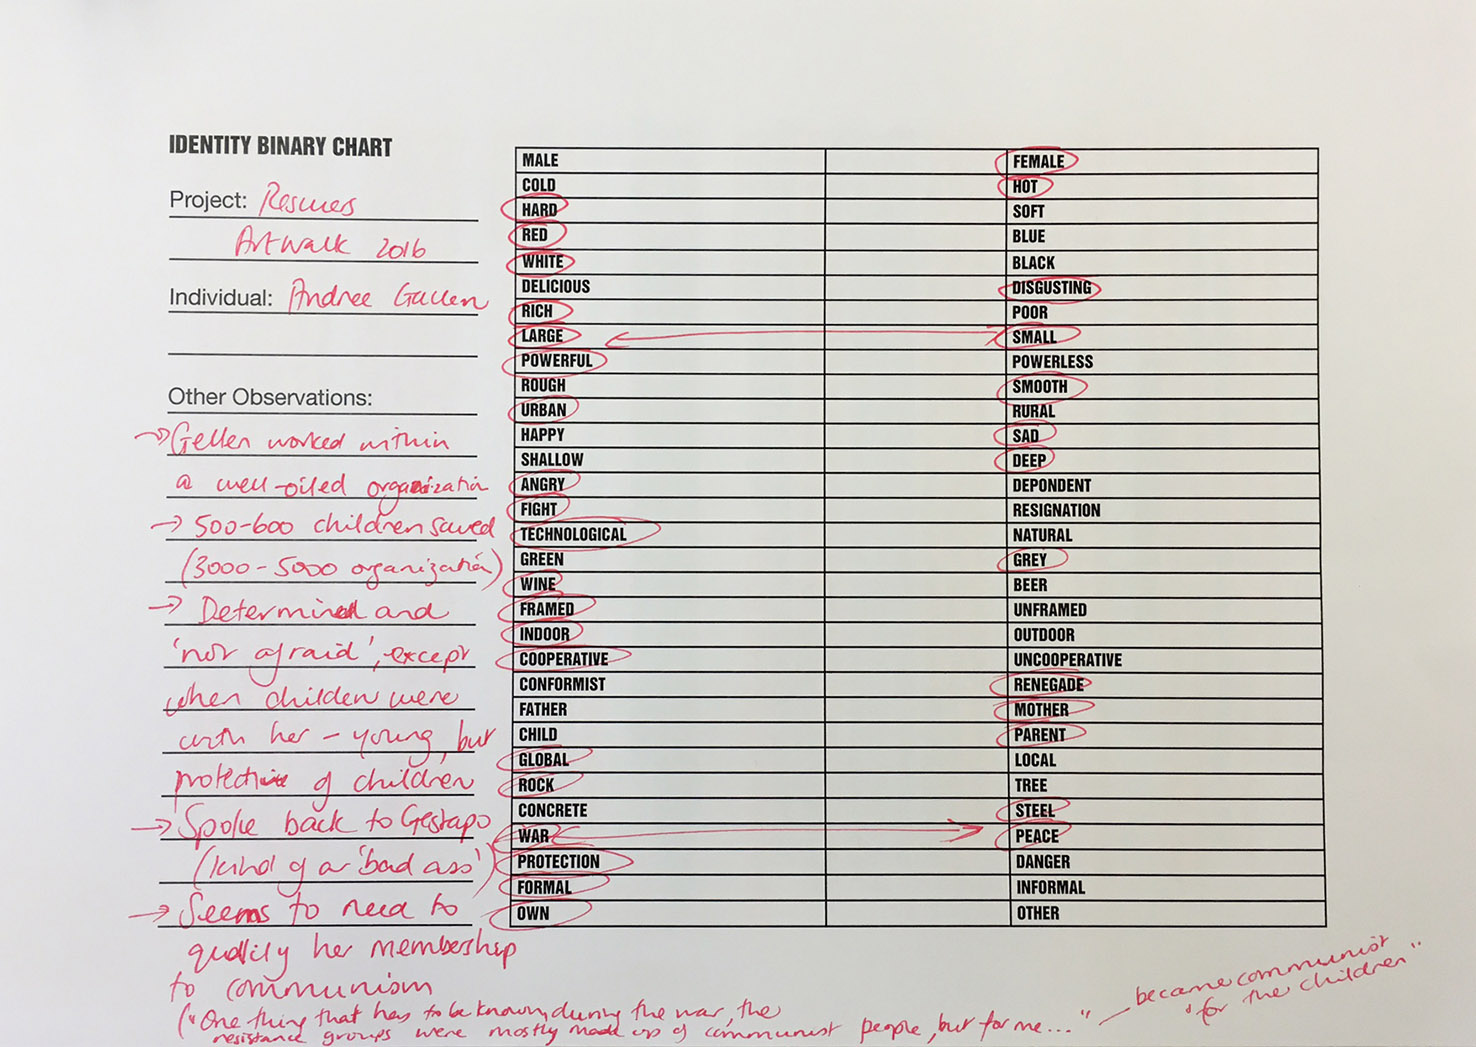 IDENTITY BINARY CHART
Project: Rescuers
Artwalk 2016
Individual: Andree Gellen
Other Observations:
→ Gellen worked within
a well-oiled organization
→ 500-600 children saved
(3000-5000 organization)
→ Determined and
'not afraid', except
when children were
with her – young, but
protective of children
→ Spoke back to Gestapo
(kind of a 'bad ass')
→ Seems to need to
qualify her membership
to communism
("One thing that has to be known, during the war, the
resistance groups were mostly made up of communist people, but for me..." — became communist
"for the children"
MALE FEMALE
COLD HOT
HARD SOFT
RED BLUE
WHITE BLACK
DELICIOUS DISGUSTING
RICH POOR
LARGE SMALL
POWERFUL POWERLESS
ROUGH SMOOTH
URBAN RURAL
HAPPY SAD
SHALLOW DEEP
ANGRY DEPONDENT
FIGHT RESIGNATION
TECHNOLOGICAL NATURAL
GREEN GREY
WINE BEER
FRAMED UNFRAMED
INDOOR OUTDOOR
COOPERATIVE UNCOOPERATIVE
CONFORMIST RENEGADE
FATHER MOTHER
CHILD PARENT
GLOBAL LOCAL
ROCK TREE
CONCRETE STEEL
WAR PEACE
PROTECTION DANGER
FORMAL INFORMAL
OWN OTHER